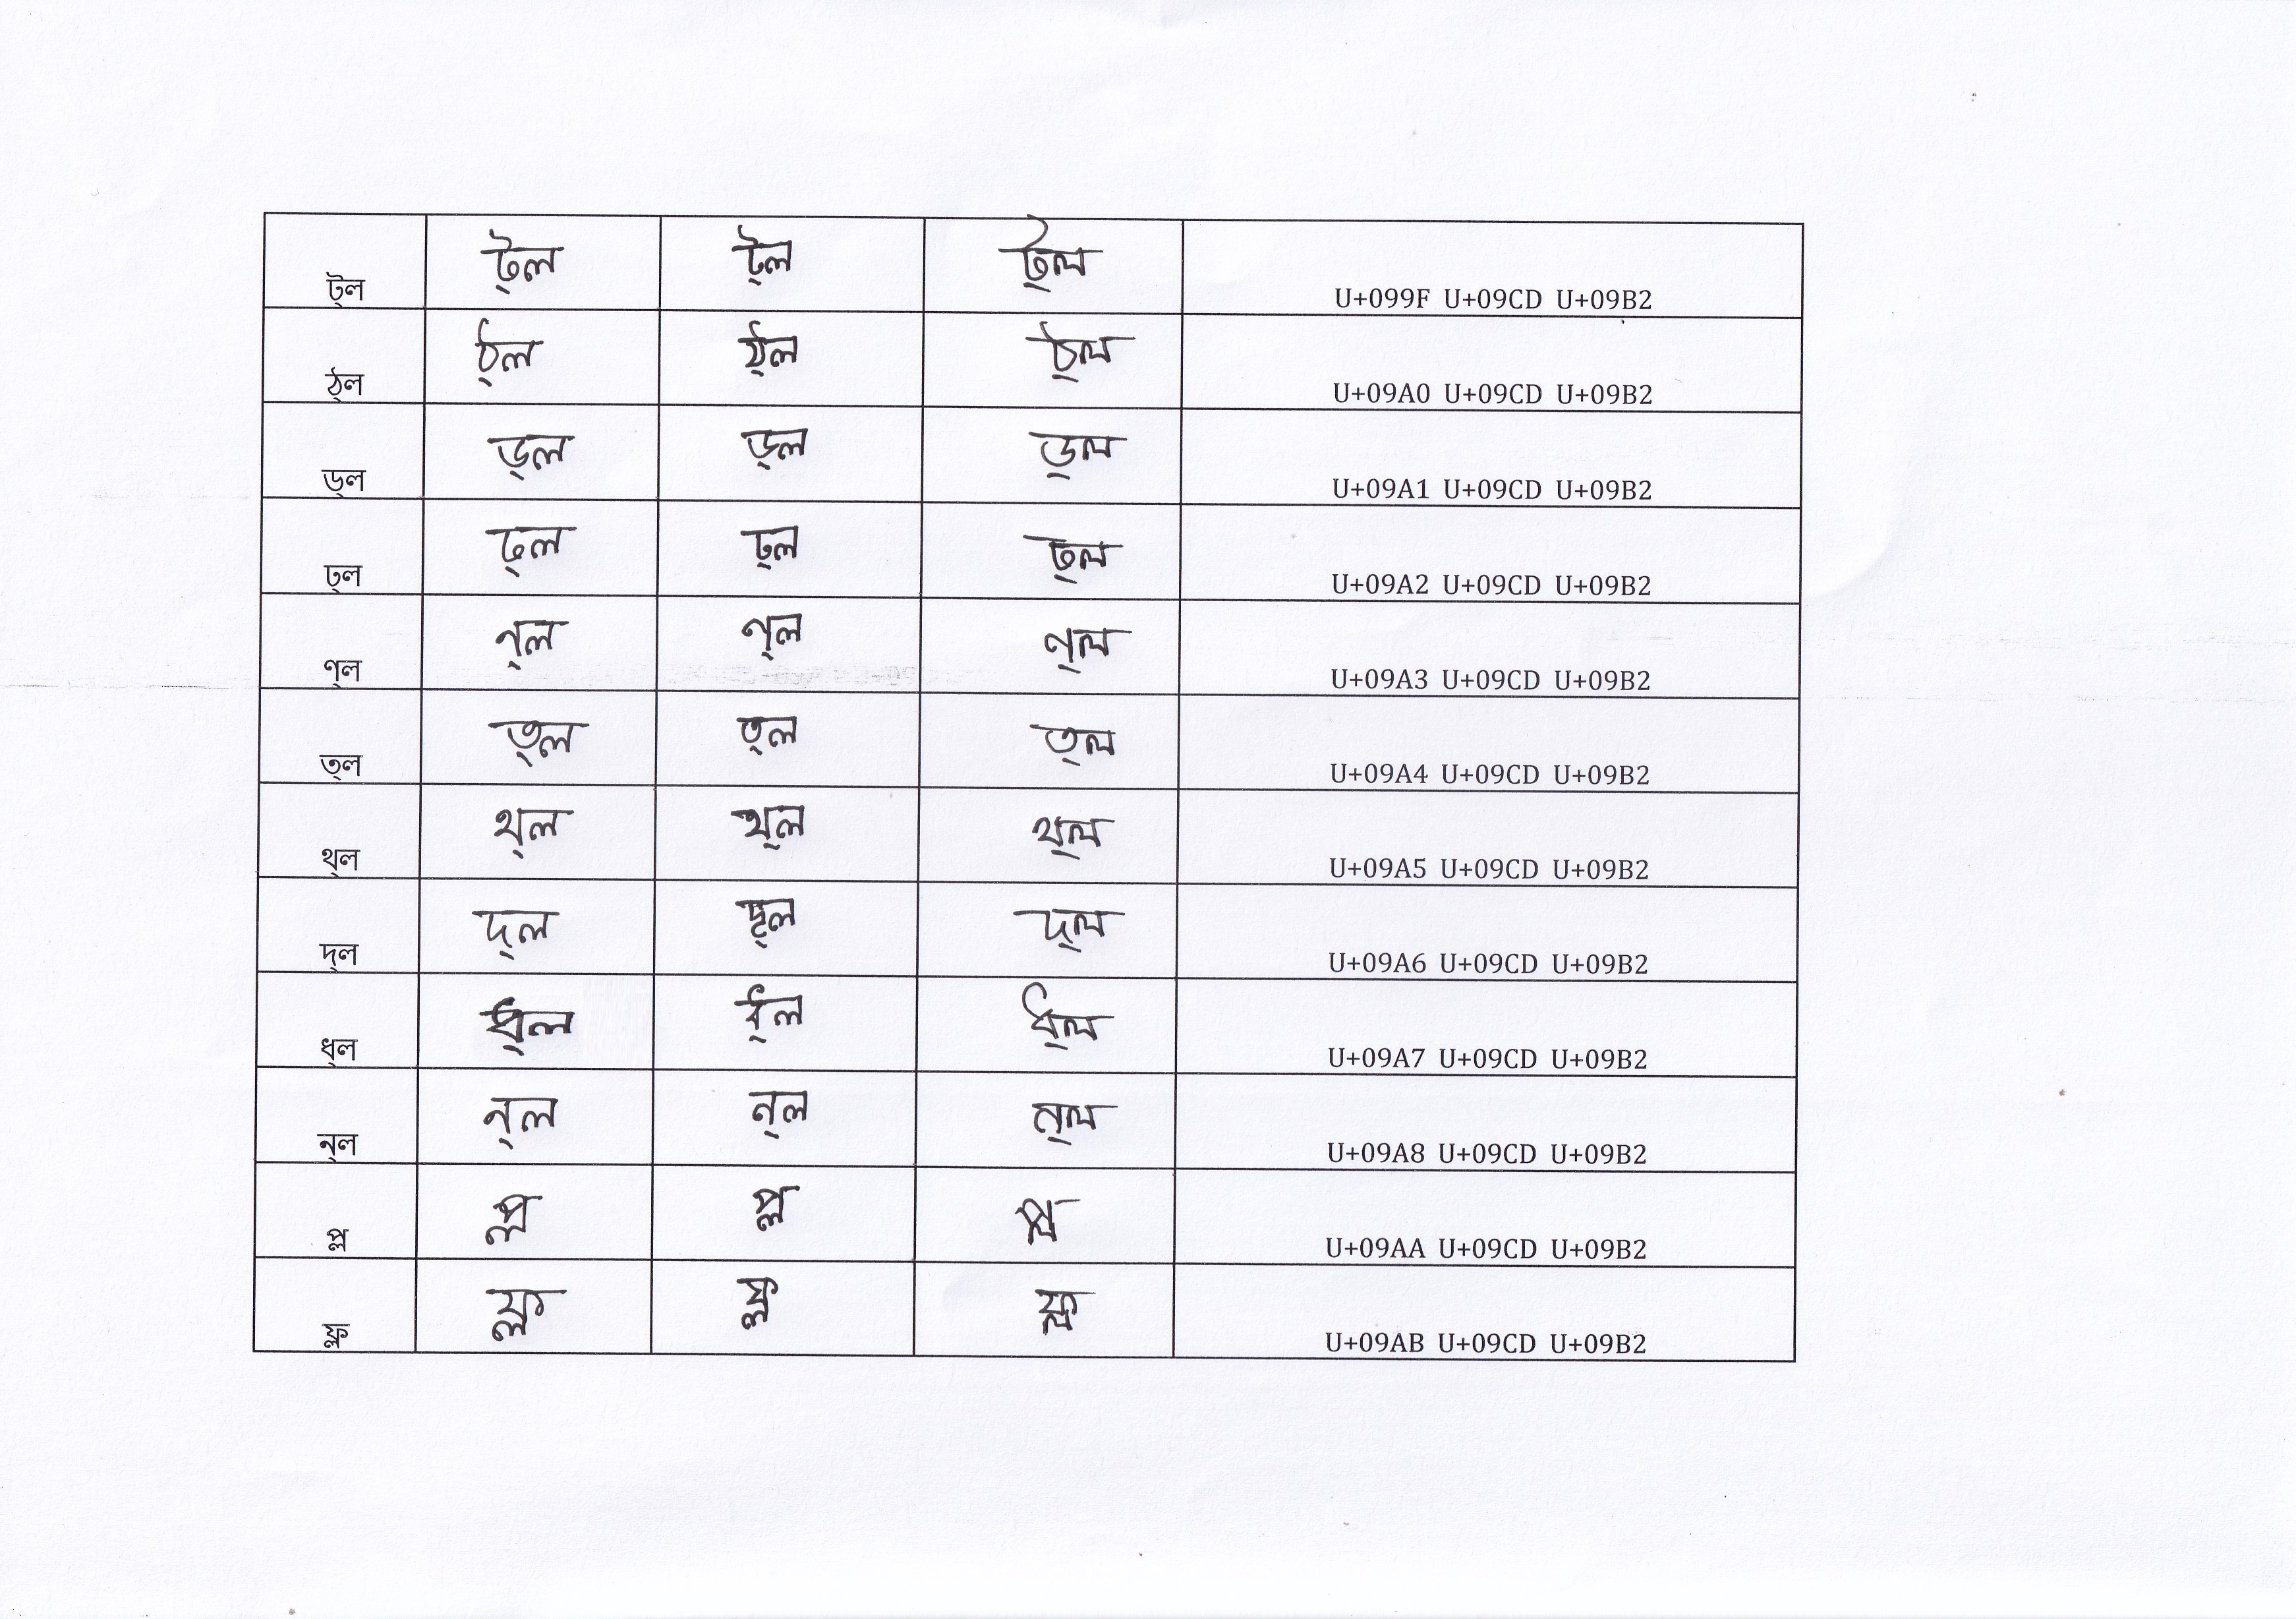 ট্ল ট্ল ট্ল ট্ল U+099F U+09CD U+09B2
ঠ্ল ঠ্ল ঠ্ল ঠ্ল U+09A0 U+09CD U+09B2
ড্ল ড্ল ড্ল ড্ল U+09A1 U+09CD U+09B2
ঢ্ল ঢ্ল ঢ্ল ঢ্ল U+09A2 U+09CD U+09B2
ণ্ল ণ্ল ণ্ল ণ্ল U+09A3 U+09CD U+09B2
ত্ল ত্ল ত্ল ত্ল U+09A4 U+09CD U+09B2
থ্ল থ্ল থ্ল থ্ল U+09A5 U+09CD U+09B2
দ্ল দ্ল দ্ল দ্ল U+09A6 U+09CD U+09B2
ধ্ল ধ্ল ধ্ল ধ্ল U+09A7 U+09CD U+09B2
ন্ল ন্ল ন্ল ন্ল U+09A8 U+09CD U+09B2
প্ল প্ল প্ল প্ল U+09AA U+09CD U+09B2
ফ্ল ফ্ল ফ্ল ফ্ল U+09AB U+09CD U+09B2